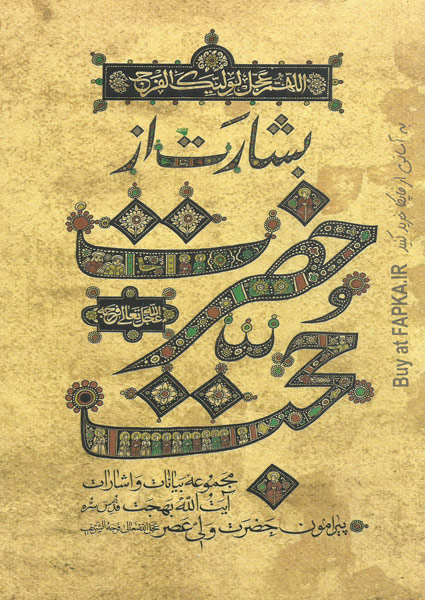 اللهم عجل لولیک الفرج
بشارت از
حضرت
عجل الله تعالی فرجه
حجت
مجموعه بیانات و اشارات
آیت الله بهجت قدس سره
پیرامون حضرت ولی عصر عجل الله تعالی فرجه الشریف
به آسانی از فاپکا خرید کنید
Buy at FAPKA.IR